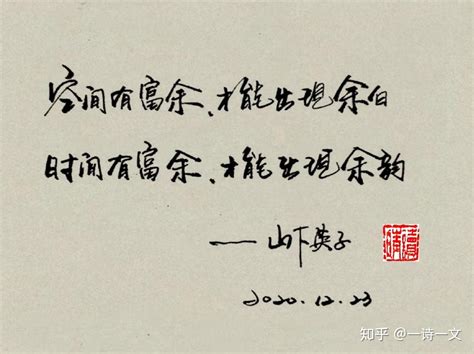 空间有富余、才能出现余白
时间有富余、才能出现余韵
——山下英子
2020.12.23
知乎 @一诗一文